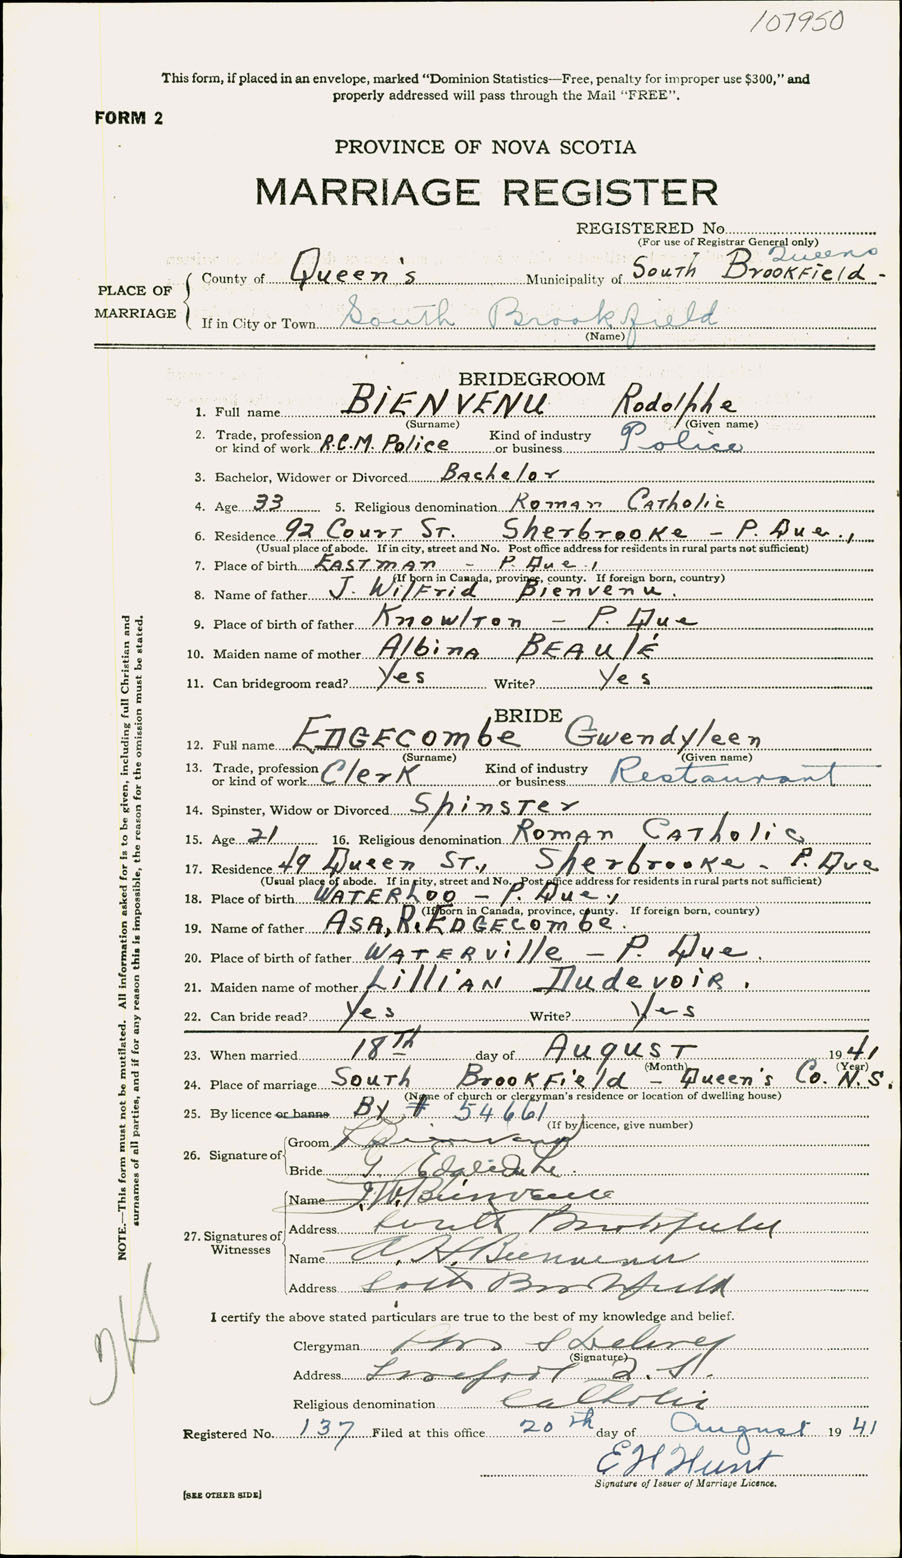 107950
This form, if placed in an envelope, marked "Dominion Statistics—Free, penalty for improper use $300," and
properly addressed will pass through the Mail "FREE".
FORM 2
PROVINCE OF NOVA SCOTIA
MARRIAGE REGISTER
REGISTERED No.
(For use of Registrar General only)
Queens
PLACE OF MARRIAGE
County of Queen's Municipality of South Brookfield -
If in City or Town South Brookfield
(Name)
BRIDEGROOM
1. Full name BIENVENU Rodolphe
(Surname) (Given name)
2. Trade, profession or kind of work R.C.M. Police Kind of industry or business Police
3. Bachelor, Widower or Divorced Bachelor
4. Age 33 5. Religious denomination Roman Catholic
6. Residence 92 Court St. Sherbrooke - P. Que.,
(Usual place of abode. If in city, street and No. Post office address for residents in rural parts not sufficient)
7. Place of birth EASTMAN - P. Que.,
(If born in Canada, province, county. If foreign born, country)
8. Name of father J. Wilfrid Bienvenu.
9. Place of birth of father Knowlton - P. Que
10. Maiden name of mother Albina BEAULÉ
11. Can bridegroom read? Yes Write? Yes
BRIDE
12. Full name EDGECOMbe Gwendyleen
(Surname) (Given name)
13. Trade, profession or kind of work Clerk Kind of industry or business Restaurant
14. Spinster, Widow or Divorced Spinster
15. Age 21 16. Religious denomination Roman Catholic
17. Residence 49 Queen St., Sherbrooke - P. Que
(Usual place of abode. If in city, street and No. Post office address for residents in rural parts not sufficient)
18. Place of birth WATERLOO - P. Que.,
(If born in Canada, province, county. If foreign born, country)
19. Name of father ASA, R. EDGECOMbe.
20. Place of birth of father WATERville - P. Que.
21. Maiden name of mother Lillian Dudevoir.
22. Can bride read? Yes Write? Yes
23. When married 18th day of August 1941
(Month) (Year)
24. Place of marriage South Brookfield - Queen's Co. N.S.
(Name of church or clergyman's residence or location of dwelling house)
25. By licence or banns By # 54661
(If by licence, give number)
26. Signature of
Groom R Bienvenu
Bride G. Edgecombe.
27. Signatures of Witnesses
Name J. W. Bienvenue
Address South Brookfield
Name A. H. Bienvenu
Address South Brookfield
I certify the above stated particulars are true to the best of my knowledge and belief.
Clergyman
(Signature)
Address Liverpool N.S.
Religious denomination Catholic
Registered No. 137 Filed at this office 20th day of August 1941
E H Hunt
Signature of Issuer of Marriage Licence.
[SEE OTHER SIDE]
NOTE.—This form must not be mutilated. All information asked for is to be given, including full Christian and
surnames of all parties, and if for any reason this is impossible, the reason for the omission must be stated.